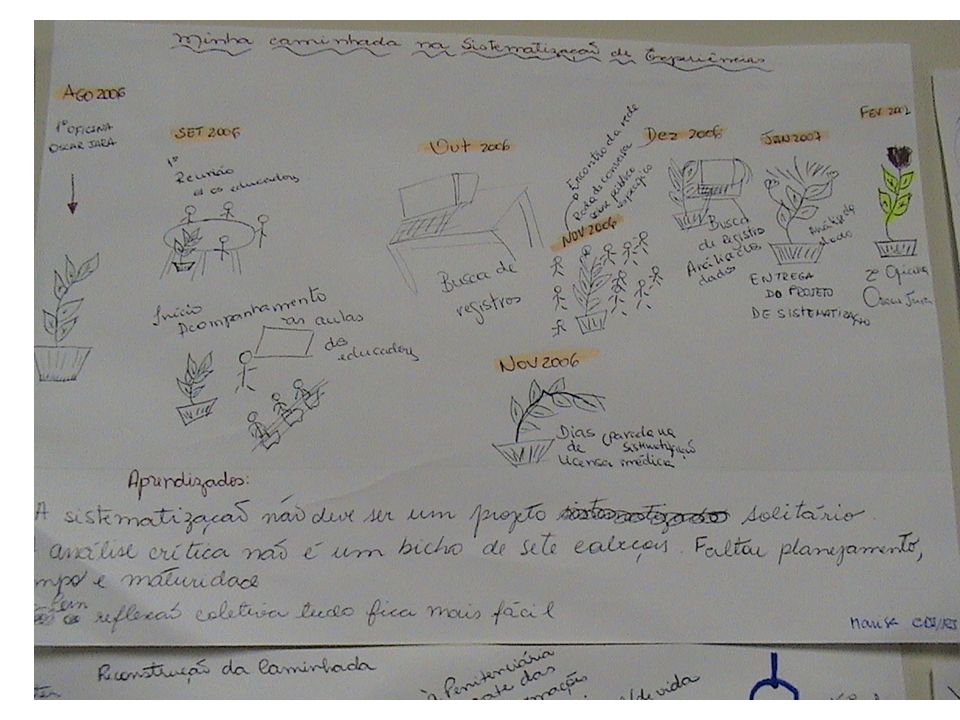 Minha caminhada na Sistematização de Experiências
AGO 2006
1º OFICINA
OSCAR JARA
SET 2006
1º
Reunião
c/ os educadores
Início
Acompanhamento
às aulas
dos
educadores
Out 2006
Busca de
registros
Encontro da rede
Roda de conversa
sobre público
específico
NOV 2006
NOV 2006
Dias
de
licensa médica
parada na
sistematização
Dez 2006
Busca
de registro
Análise dos
dados
JAN 2007
Análise de
dado
ENTREGA
DO PROJETO
DE SISTEMATIZAÇÃO
FEV 2007
2º Oficina
Oscar Jara
Aprendizados:
A sistematização não deve ser um projeto solitário.
análise crítica não é um bicho de sete cabeças. Faltou planejamento,
mpo e maturidade
reflexão coletiva tudo fica mais fácil
CDI/RJ
Reconstrução da Caminhada
à Penitenciária
ate das
rmações
de vida